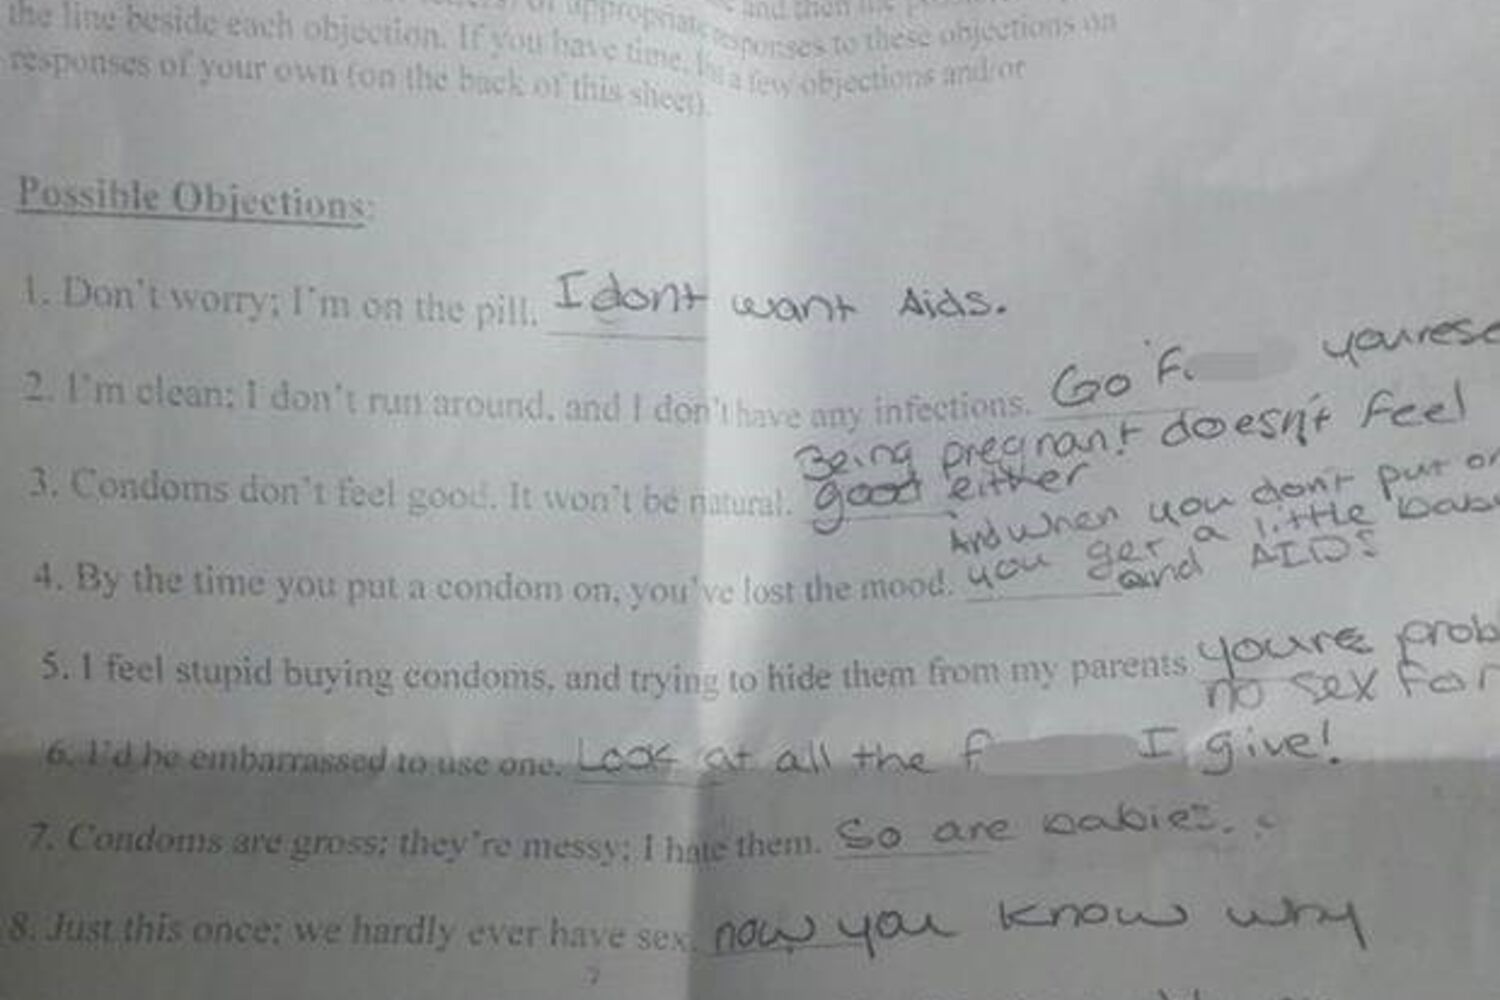 appropriate and then
the line beside each objection. If you have time, responses to these objections on
responses of your own (on the back of this sheet). a few objections and/or
Possible Objections:
1. Don't worry; I'm on the pill. I dont want Aids.
2. I'm clean; I don't run around, and I don't have any infections. Go F. yourese
3. Condoms don't feel good. It won't be natural. Being pregnant doesn't feel
good either
4. By the time you put a condom on, you've lost the mood. And when you don't put on
you get a little bab
and AIDS
5. I feel stupid buying condoms, and trying to hide them from my parents youre prob
no sex for
6. I'd be embarrassed to use one. Look at all the f I give!
7. Condoms are gross; they're messy; I hate them. So are babies.
8. Just this once; we hardly ever have sex. now you know why